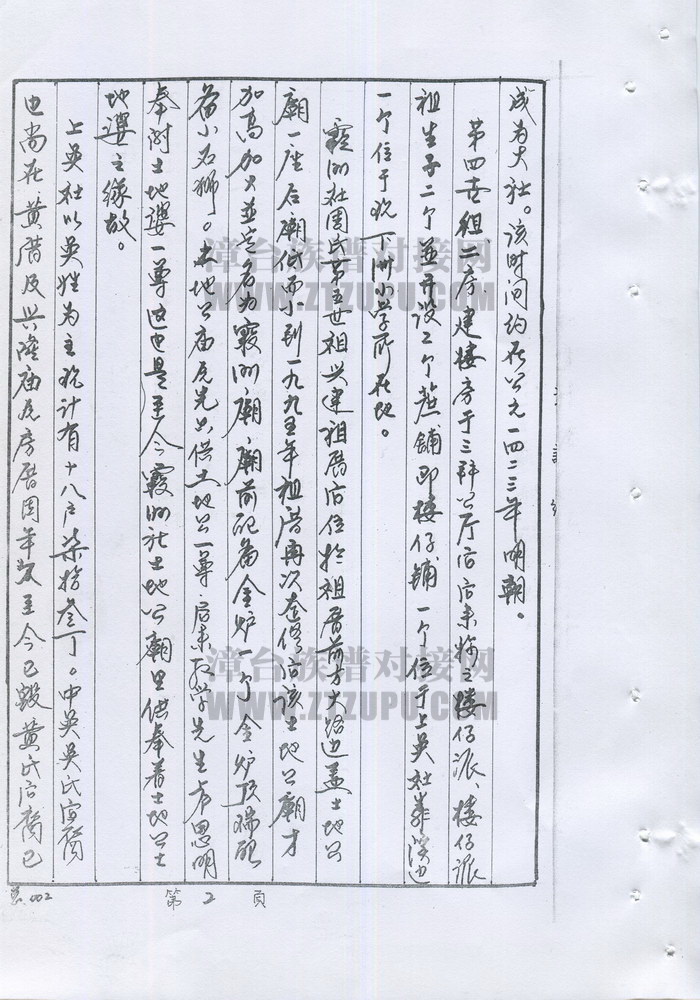 成为大社。该时间约在公元一四二三年明朝。
第四世祖二房建楼房于三拜公厅后后来称之楼仔派、楼仔派
祖生子二个並开设二个蔗铺即楼仔铺一个位于上吴社葬溪边
一个位于现下洲小学所在地。
霞洲社周氏第五世祖兴建祖厝后位於祖厝前方大路边盖土地公
庙一座后庙低而小到一九九五年祖厝再次查修后该土地公廟才
加高加大並定名为霞洲廟、廟前配备金炉一个金炉顶端配
备小石狮。本地公庙原先只供土地公一尊后来教学先生卢思明
奉附土地婆一尊这也是至今霞洲社土地公廟里供奉着土地公土
地婆之缘故。
上吴社以吴姓为主统计有十八户柒拾叁丁。中吴吴氏
也尚在、黄厝及兴 庙瓦房厝周年 至今已毁黄氏后裔已
第 2 页
002
漳台族谱对接网
WWW.ZTZUPU.COM
漳台族谱对接网
WWW.ZTZUPU.COM